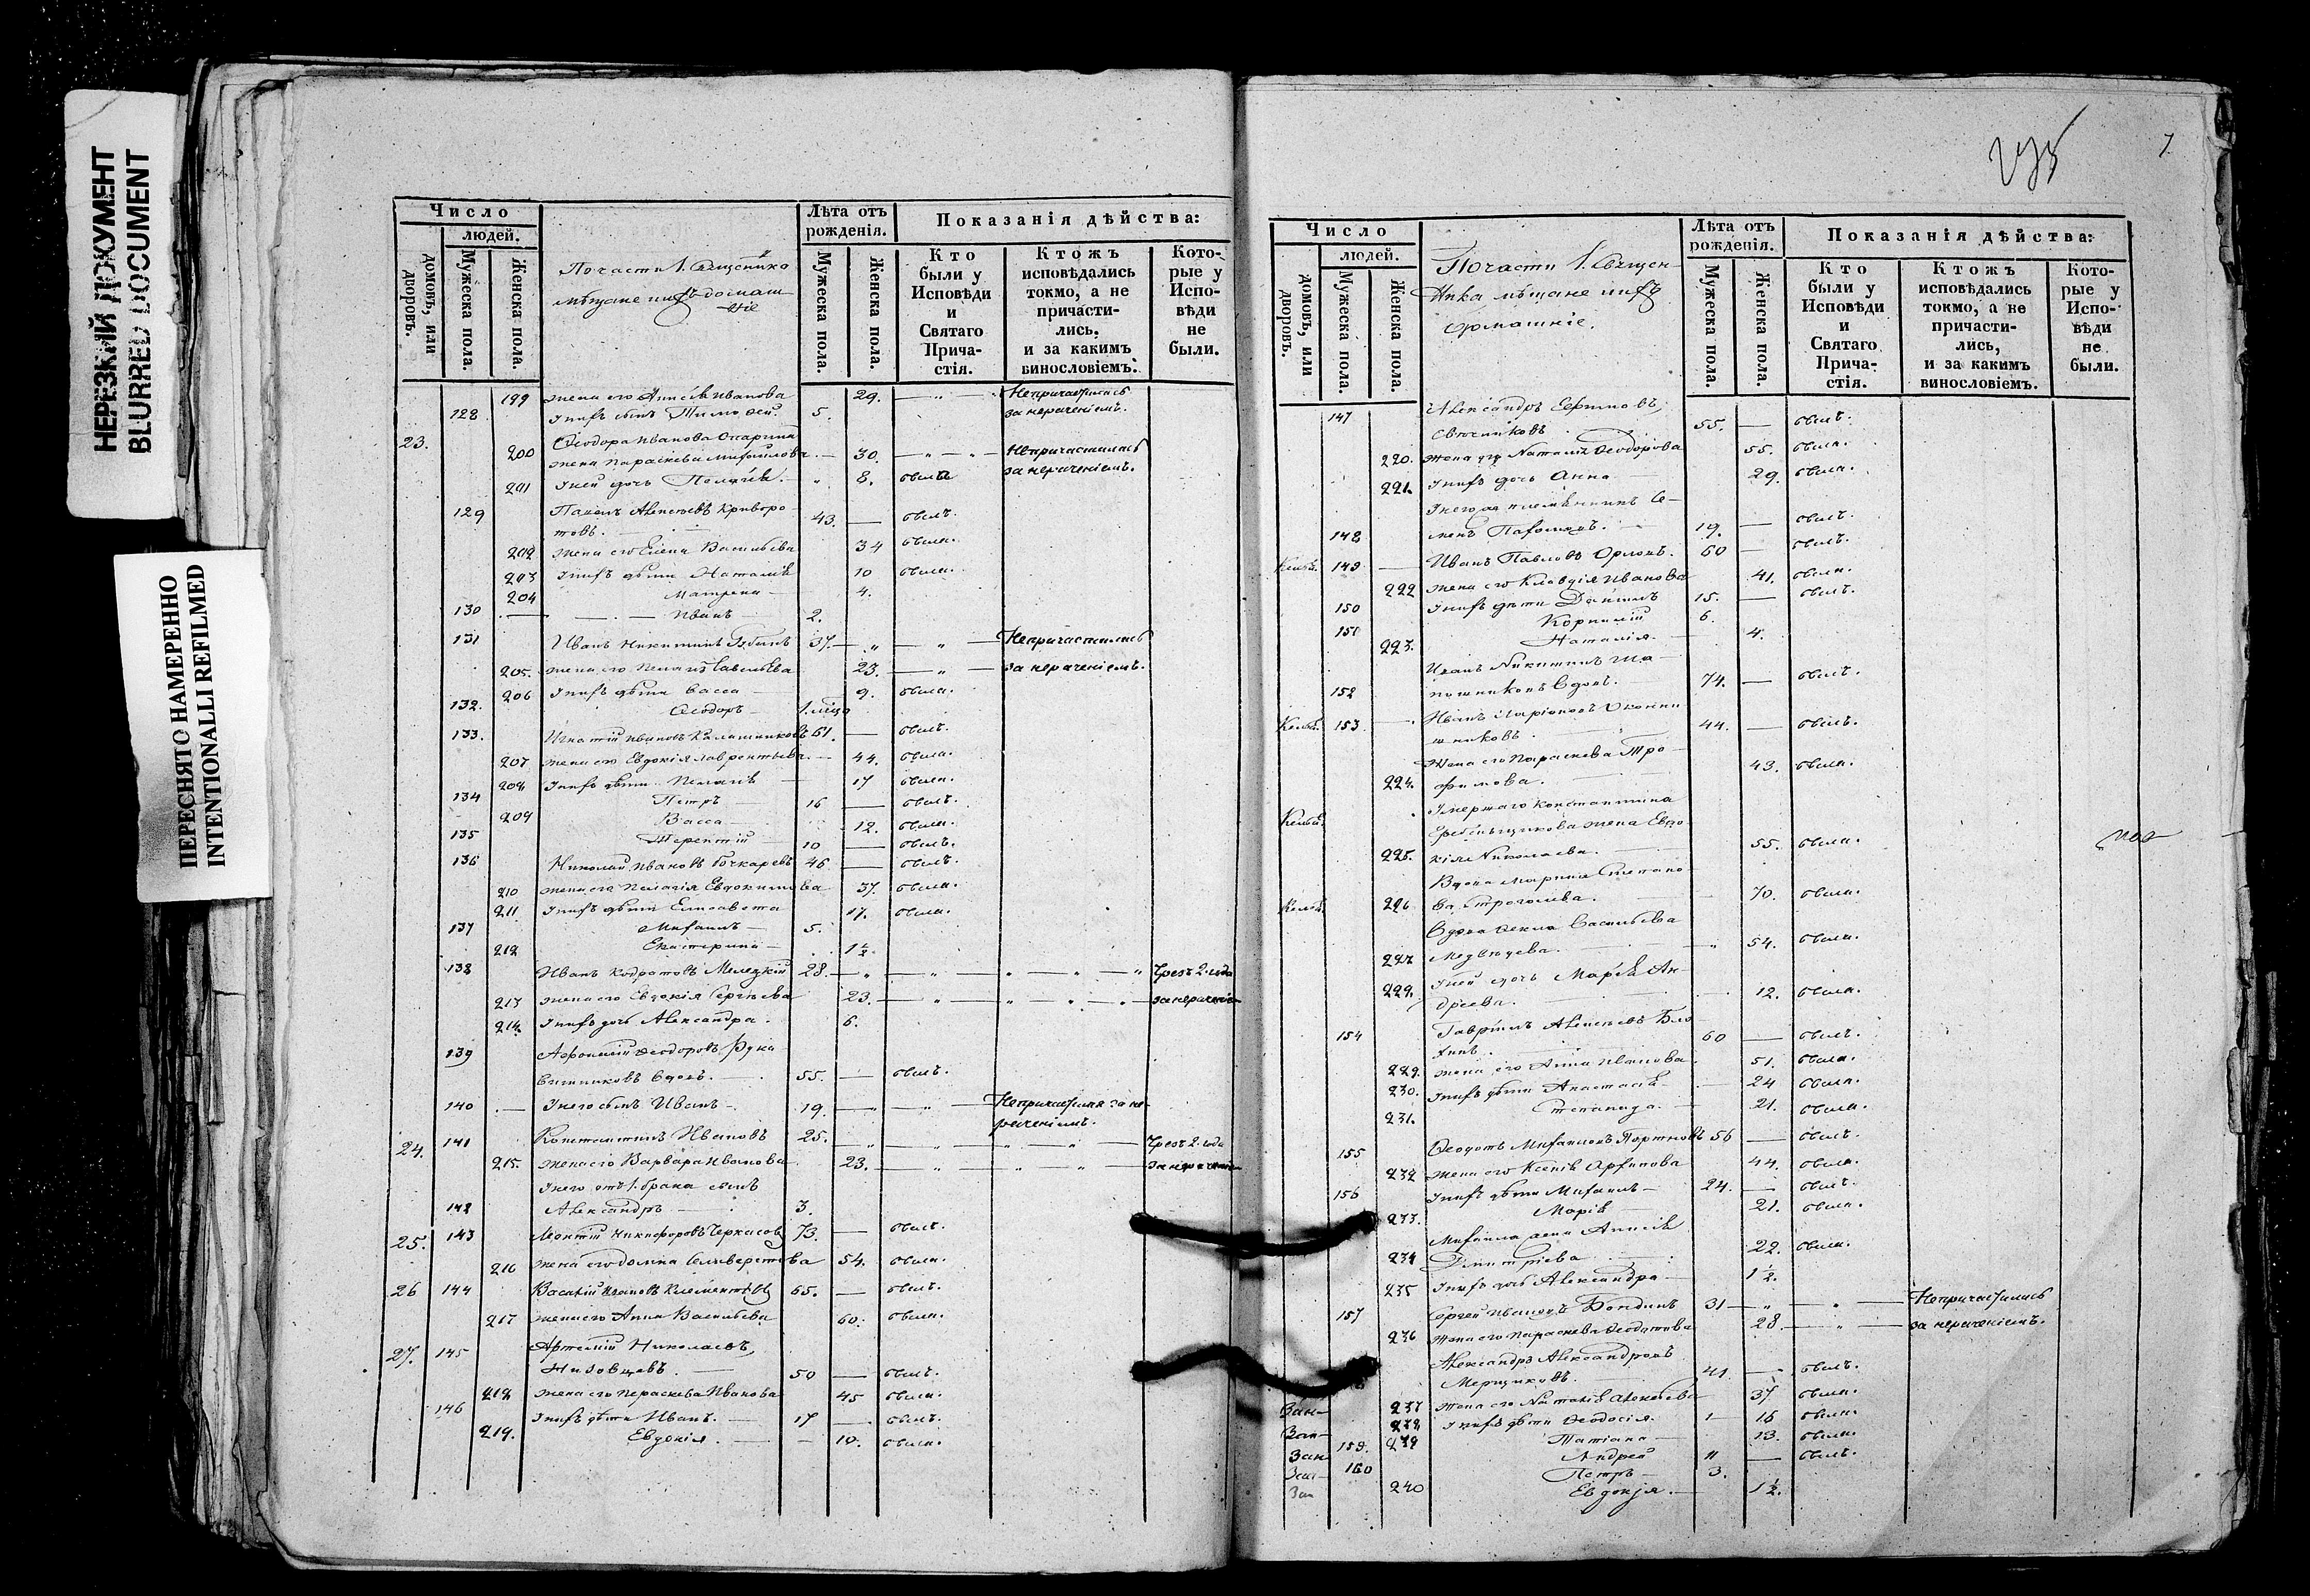 НЕРЕЗКИЙ ДОКУМЕНТ
BLURRED DOCUMENT
ПЕРЕСНЯТО НАМЕРЕННО
INTENTIONALLI REFILMED
Число
людей.
домовъ, или дворовъ.
Мужеска пола.
Женска пола.
По части 1. Священника
мѣщане и ихъ домаш
ніе
Лѣта отъ рожденія.
Мужеска пола.
Женска пола.
Показанія дѣйства:
Кто были у Исповѣди и Святаго Прича- стія.
Ктожъ исповѣдались токмо, а не причасти- лись, и за какимъ винословіемъ.
Кото- рые у Испо- вѣди не были.
199 жена его Анисія Иванова 29. Непричастилась
128 У нихъ сынъ Тимофей 5. за нераченіемъ.
23. Ѳеодора Иванова
200 жена Параскева Михайлова 30. Непричастилась
201 У ней дочь Пелагія 8. была за нераченіемъ.
129 Павелъ Алексѣевъ Криворо
товъ. 43. былъ.
202 жена его Елена Васильева 34 была.
203 У нихъ дѣти Наталія 10 была.
204 Матрена 4.
130 Иванъ 2.
131 Иванъ Никитинъ 37. Непричастились
205. жена его Пелагія Савельева 23. за нераченіемъ.
206 У нихъ дѣти Васса 9. была.
132. Ѳеодоръ
133. Игнатій Ивановъ Калашниковъ 61. былъ.
207 жена его Евдокія Лаврентьева 44. была.
208 У нихъ дѣти Пелагія 17 была.
134 Петръ 16 былъ.
209 Васса 12. была.
135 Терентій 10 былъ.
136 Николай Ивановъ Бочкаревъ 46 былъ.
210 жена его Пелагія Евдокимова 37. была.
211 У нихъ дѣти Елисавета 17. была.
137 Михаилъ 5.
212 Екатерина 1½.
138 Иванъ Кодратовъ Мелецкій 28. Чрезъ 2. года
213 жена его Евдокія Сергѣева 23. за нераченіе
214. У нихъ дочь Александра. 6.
139 Афонасій Ѳеодоровъ Рука
вишниковъ вдовъ. 55. былъ.
140 У него сынъ Иванъ 19. Непричастился за не-
раченіемъ.
24. 141 Константинъ Ивановъ 25. Чрезъ 2. года
215. жена его Варвара Иванова 23. за нерачені
У него отъ 1. брака сынъ
142 Александръ 3.
25. 143 Леонтій Никифоровъ Черкасовъ 73. былъ.
216 жена его Домна Селиверстова 54. была.
26 144 Василій Ивановъ Климентьевъ 65. былъ.
217 жена его Анна Васильева 60. была.
27. 145 Артемій Николаевъ
Низовцевъ. 50 былъ.
218 жена его Параскева Иванова 45 была.
146 У нихъ дѣти Иванъ. 17 былъ.
219. Евдокія. 10. была.
7
Число
людей.
домовъ, или дворовъ.
Мужеска пола.
Женска пола.
По части 1. Священ-
ника мѣщане и ихъ
домашніе.
Лѣта отъ рожденія.
Мужеска пола.
Женска пола.
Показанія дѣйства:
Кто были у Исповѣди и Святаго Прича- стія.
Ктожъ исповѣдались токмо, а не причасти- лись, и за какимъ винословіемъ.
Кото- рые у Испо- вѣди не были.
147 Александръ Ефимовъ,
55. былъ.
220. жена его Наталія Ѳеодорова 55. была.
221. У нихъ дочь Анна 29. была.
У него же племянникъ Се-
148 менъ Пафомовъ. 19. былъ.
149 Иванъ Павловъ Орловъ. 60 былъ.
222 жена его Клавдія Иванова 41. была.
150 У нихъ дѣти Даніилъ 15. былъ.
151 Корнилій 6.
223. Наталія. 4.
Иванъ Никитинъ Ша-
152 пошниковъ вдовъ. 74. былъ.
153 Иванъ Иларіоновъ Оконни
шниковъ 44. былъ.
Жена его Параскева Тро
224. фимова. 43. была.
Умершаго Константина
Гребеньщикова жена Евдо
225. кія Николаева. 55. была.
Вдова Марина Степано
226 ва, Строголева. 70. была.
Вдова Ѳекла Васильева
227 Медвѣдева. 54. была.
У ней дочь Марія Ан-
228. дреева. 12. была.
154 Гавріилъ Алексѣевъ Бло
хинъ. 60 былъ.
229. жена его Анна Иванова 51. была.
230. У нихъ дѣти Анастасія 24 была.
231. Степанида. 21. была.
155 Ѳеодотъ Михайловъ Портновъ 56 былъ.
232 жена его Ксенія Архипова 44. была.
156 У нихъ дѣти Михаилъ 24. былъ.
233. Марія 21. была.
Михаила жена Анисія
234 Димитріева 22. была.
235 У нихъ дочь Александра 1½.
157 Сергей Ивановъ Бондинъ 31 Непричастились
236 Жена его Параскева Ѳеодотова 28. за нераченіемъ.
Александръ Александровъ
Мерщиковъ. 41 былъ.
Зап 237 жена его Наталія Алексѣева 37 была.
Зап 238 У нихъ дѣти Ѳеодосія. 16 была.
Зап 159. 239 Татіана 13. была.
Зап 160 Андрей 11 былъ.
Петръ 3.
Зап 240 Евдокія. 1½.